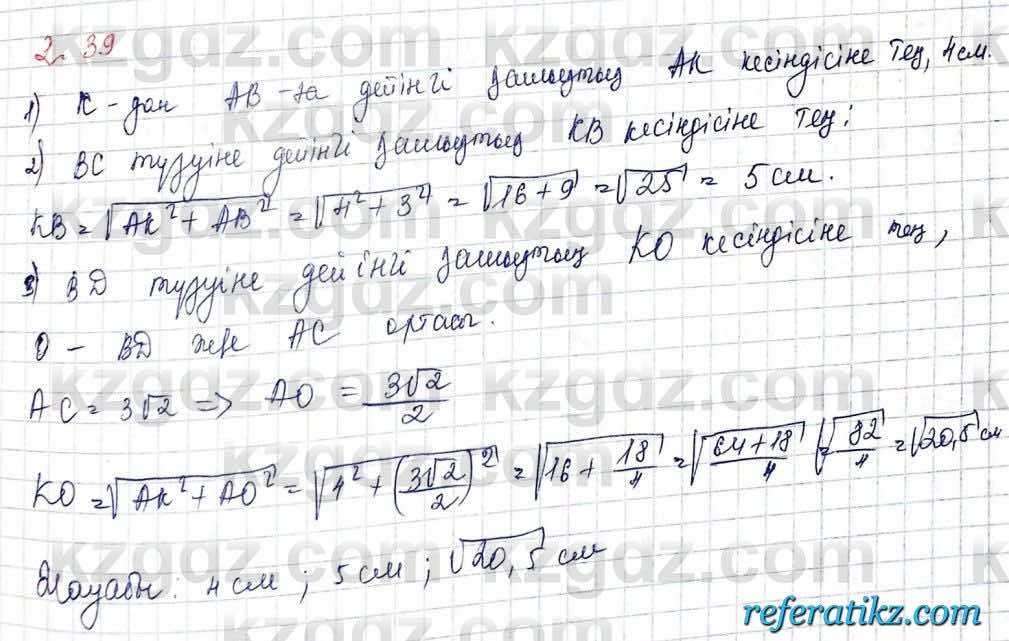 2.39
1) K-дан AB-ға дейінгі қашықтық AK кесіндісіне тең, 4см.
2) BC түзуіне дейінгі қашықтық KB кесіндісіне тең:
KB = √(AK² + AB²) = √(4² + 3²) = √(16 + 9) = √25 = 5 см.
3) BD түзуіне дейінгі қашықтық KO кесіндісіне тең,
O - BD және AC ортасы.
AC = 3√2 => AO = 3√2/2
KO = √(AK² + AO²) = √(4² + (3√2/2)²) = √(16 + 18/4) = √((64+18)/4) = √(82/4) = √20,5 см
Жауабы: 4 см ; 5 см ; √20,5 см
referatikz.com
kzgdz.com